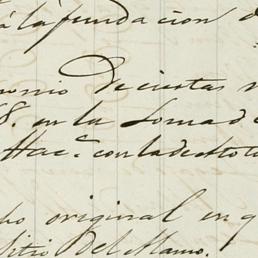 á la fundacion d
onio de ciertas
8. en la toma d
Hac.ª con la de
ho original en q
Sitio del Alamo.